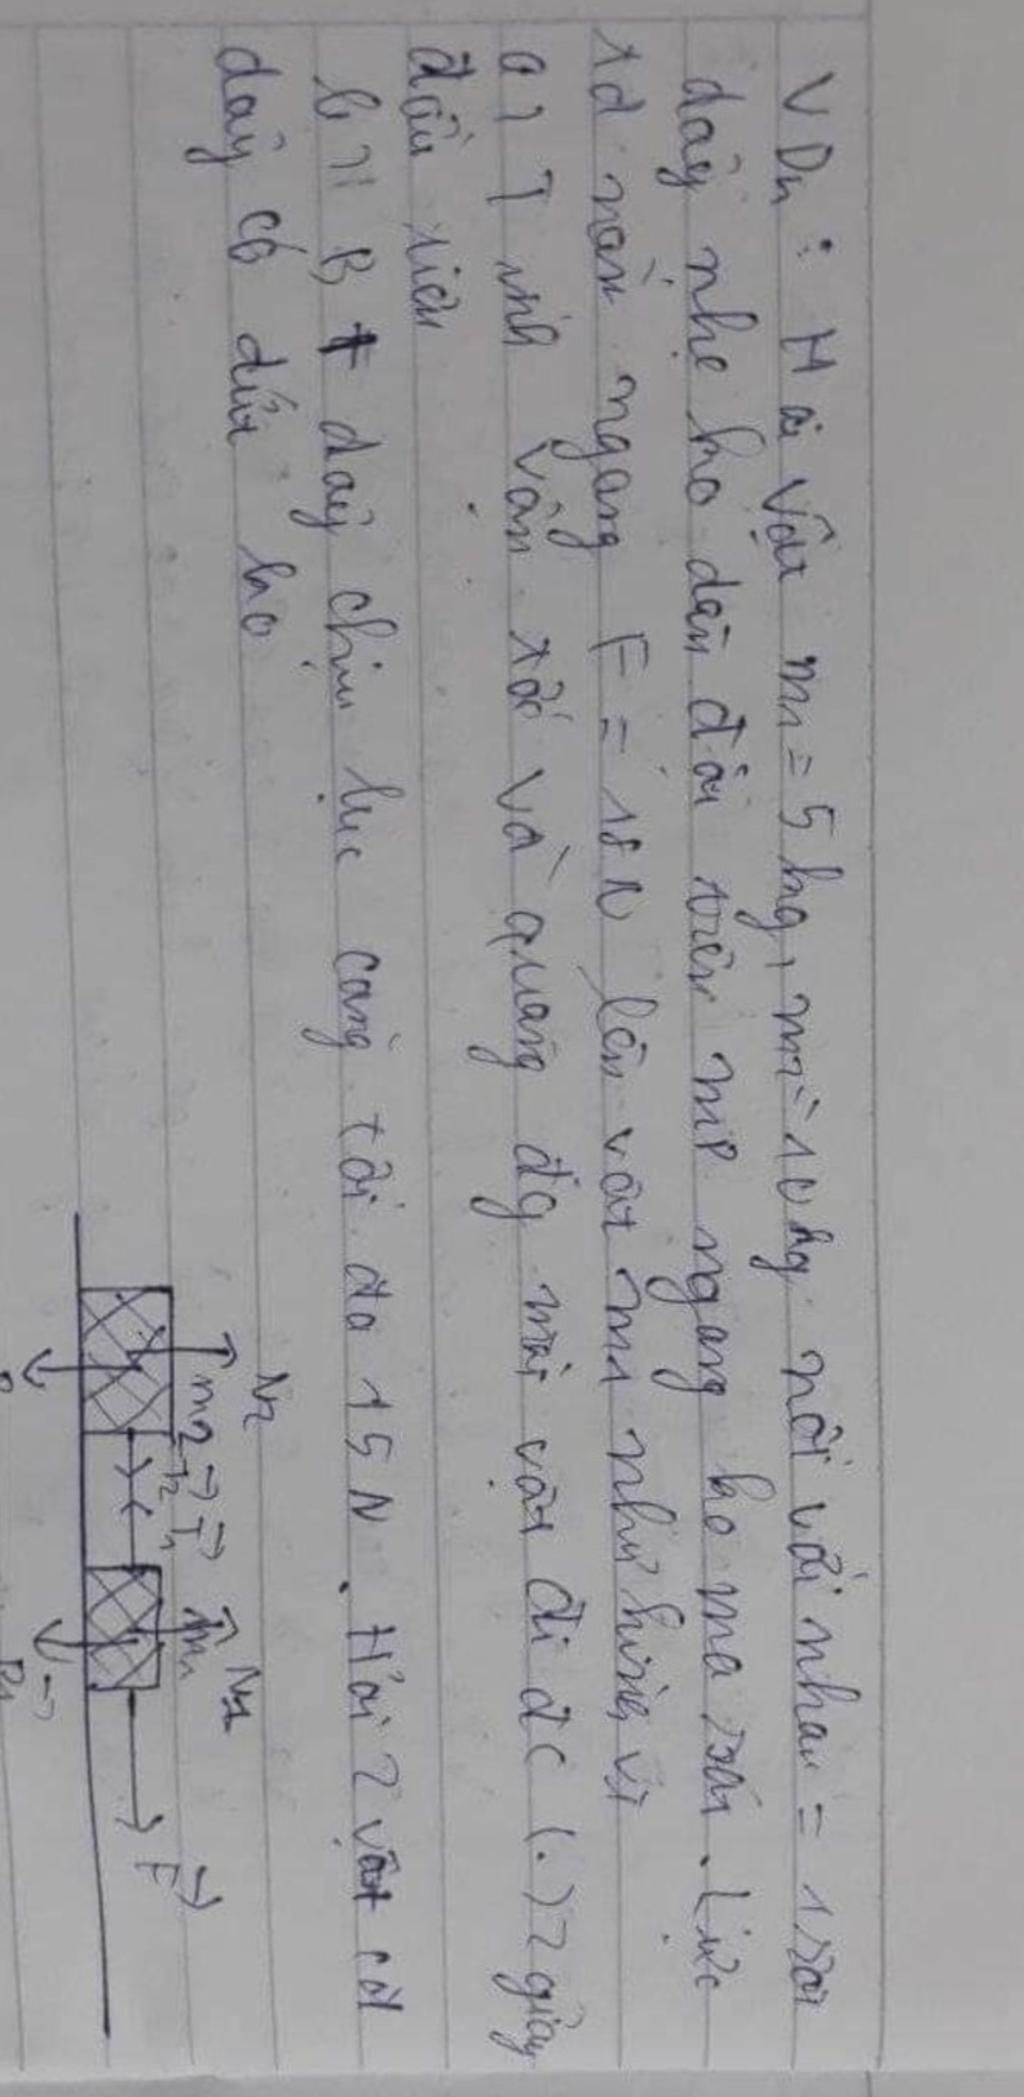 VD1 : Hai vật m1 = 5 kg, m2 = 10 kg nối với nhau = 1 sợi
dây nhẹ ko dãn đặt trên mp ngang ko ma sát. Lực
td nằm ngang F = 18 N lên vật m1 như hình vẽ
a) Tính vận tốc và quãng đg mỗi vật đi đc (.) 2 giây
đầu tiên
b) Biết dây chịu lực căng tối đa 15 N. Hỏi 2 vật cđ
dây có đứt ko
N2 N1
m2 T2 T1 m1 F
P1